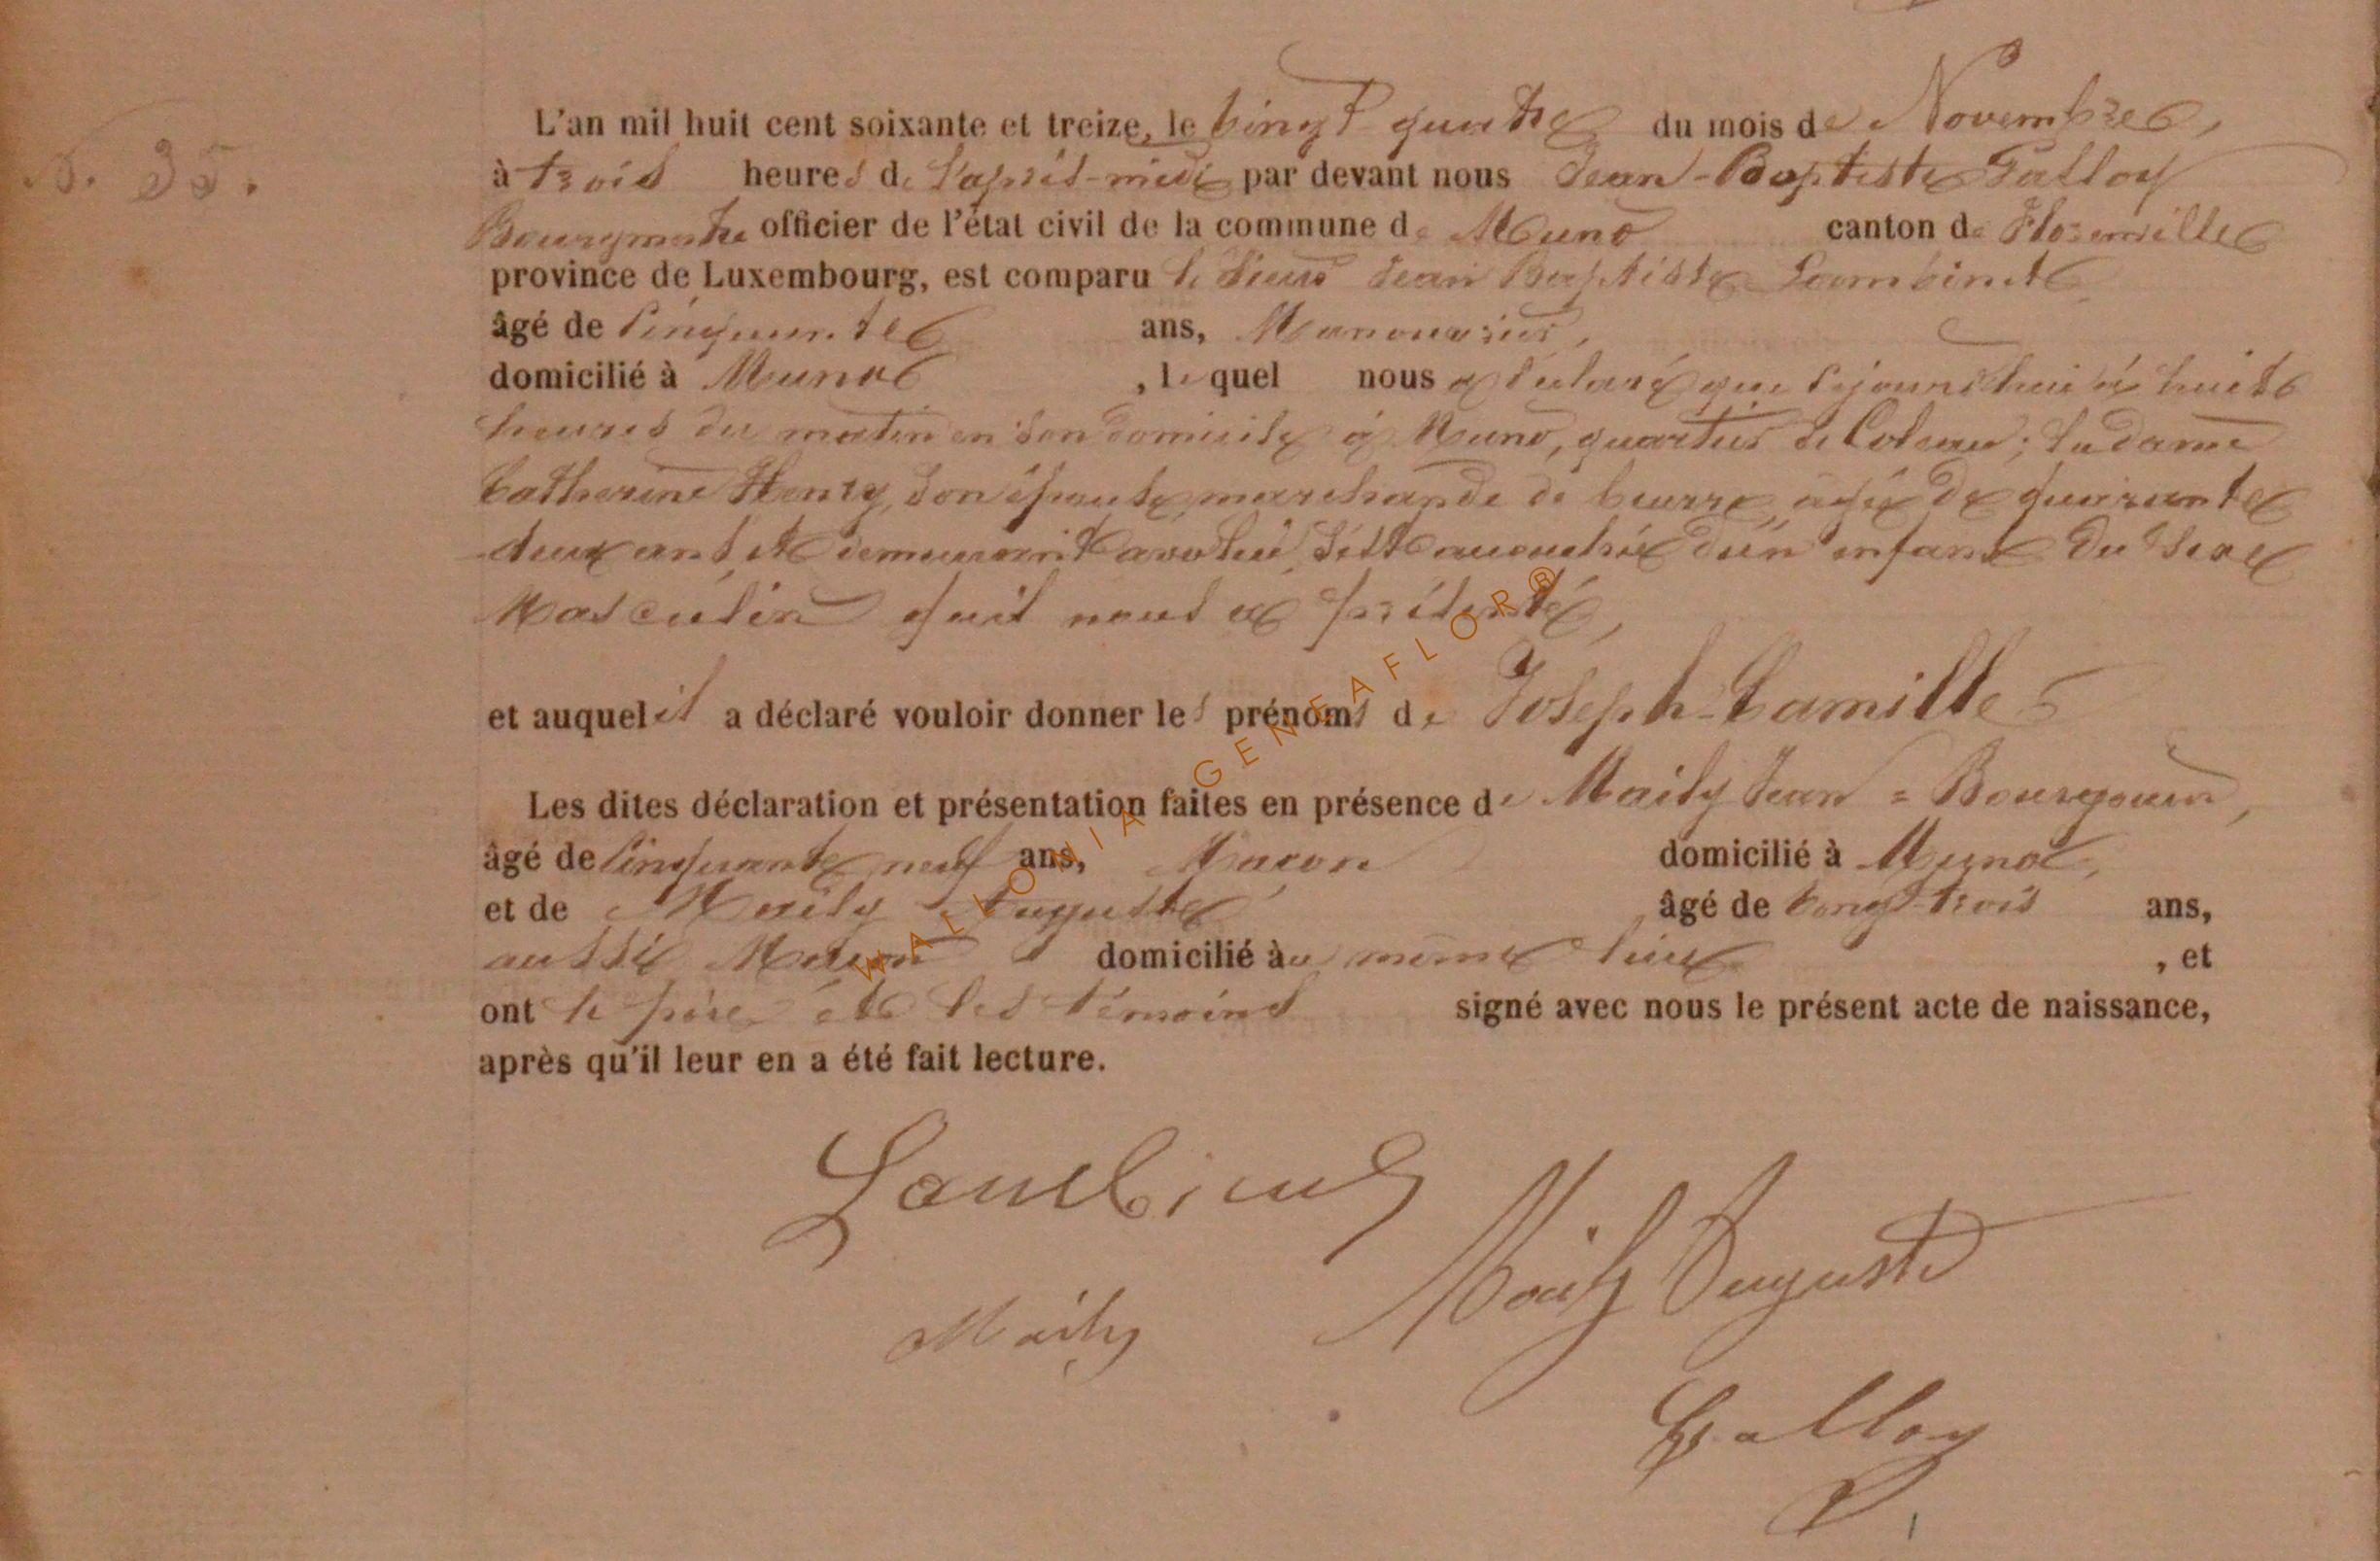 N. 35.
L'an mil huit cent soixante et treize, le vingt quatre du mois de Novembre,
à trois heures de l'après-midi par devant nous Jean-Baptiste Falloy
Bourgmestre officier de l'état civil de la commune de Muno canton de Florenville
province de Luxembourg, est comparu le sieur Jean Baptiste Lambinet
âgé de cinquante ans, Manouvrier,
domicilié à Muno , lequel nous a déclaré que cejourd'hui à huit
heures du matin en son domicile à Muno, quartier de ; la dame
Catherine Henry, son épouse, marchande de beurre, agée de quarante
deux ans, et demeurant avec lui, s'est accouchée d'un enfant du sexe
Masculin qu'il nous a présenté,
et auquel il a déclaré vouloir donner les prénoms de Joseph-Camille
Les dites déclaration et présentation faites en présence de Maily Jean = Bourgouin,
âgé de cinquante neuf ans, Macon domicilié à Muno,
et de Maily Auguste âgé de vingt-trois ans,
aussi Macon domicilié au même lieu , et
ont le père et les témoins signé avec nous le présent acte de naissance,
après qu'il leur en a été fait lecture.
Lambinet
Maily Auguste
Maily
Falloy
WALLONIA GENEAFLOR®